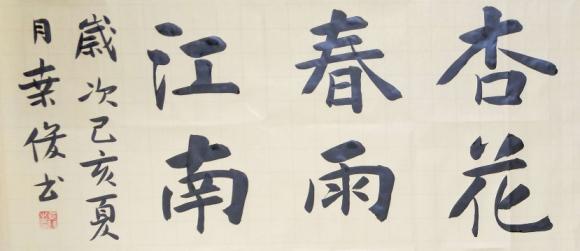 杏花
春雨
江南
歳次己亥夏
月桒俊书